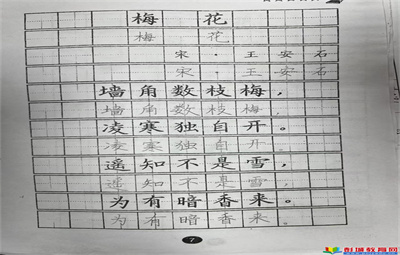 梅花
梅花
宋·王安石
宋·王安石
墙角数枝梅，
墙角数枝梅，
凌寒独自开。
凌寒独自开。
遥知不是雪，
遥知不是雪，
为有暗香来。
为有暗香来。
7
彭城教育网